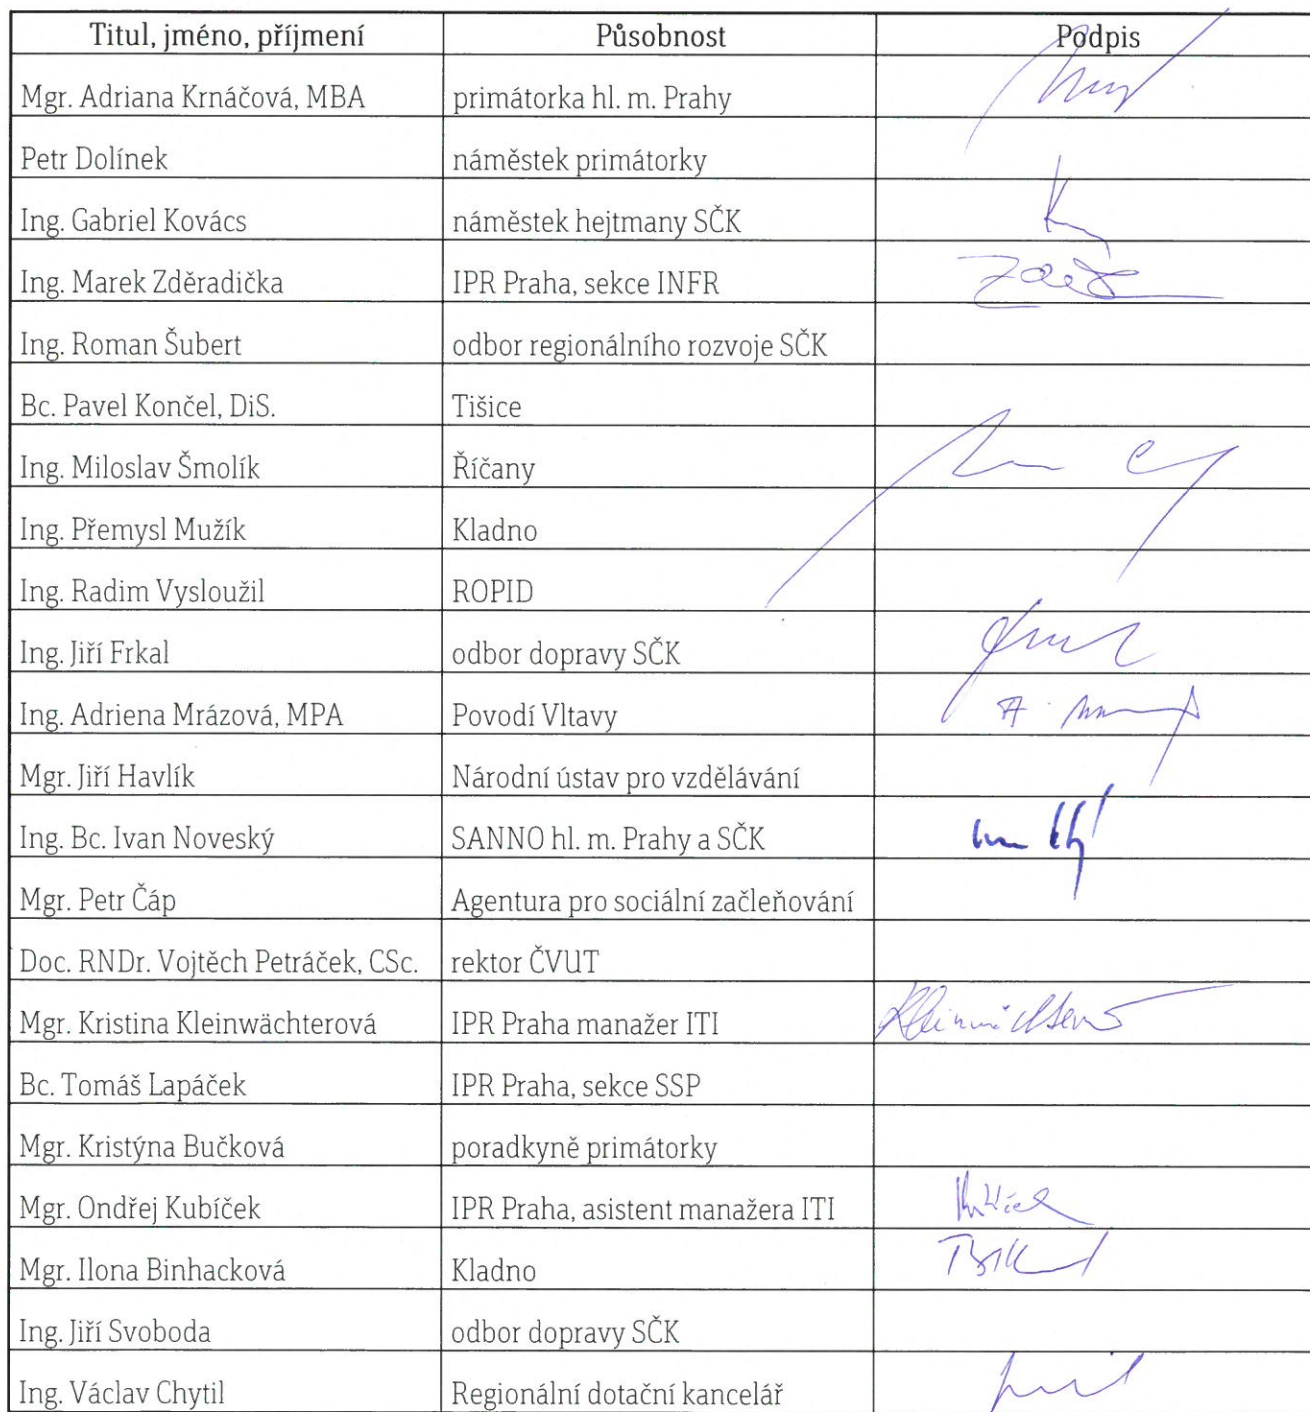 Titul, jméno, příjmení Působnost Podpis
Mgr. Adriana Krnáčová, MBA primátorka hl. m. Prahy
Petr Dolínek náměstek primátorky
Ing. Gabriel Kovács náměstek hejtmany SČK
Ing. Marek Zděradička IPR Praha, sekce INFR
Ing. Roman Šubert odbor regionálního rozvoje SČK
Bc. Pavel Končel, DiS. Tišice
Ing. Miloslav Šmolík Říčany
Ing. Přemysl Mužík Kladno
Ing. Radim Vysloužil ROPID
Ing. Jiří Frkal odbor dopravy SČK
Ing. Adriena Mrázová, MPA Povodí Vltavy
Mgr. Jiří Havlík Národní ústav pro vzdělávání
Ing. Bc. Ivan Noveský SANNO hl. m. Prahy a SČK
Mgr. Petr Čáp Agentura pro sociální začleňování
Doc. RNDr. Vojtěch Petráček, CSc. rektor ČVUT
Mgr. Kristina Kleinwächterová IPR Praha manažer ITI
Bc. Tomáš Lapáček IPR Praha, sekce SSP
Mgr. Kristýna Bučková poradkyně primátorky
Mgr. Ondřej Kubíček IPR Praha, asistent manažera ITI
Mgr. Ilona Binhacková Kladno
Ing. Jiří Svoboda odbor dopravy SČK
Ing. Václav Chytil Regionální dotační kancelář